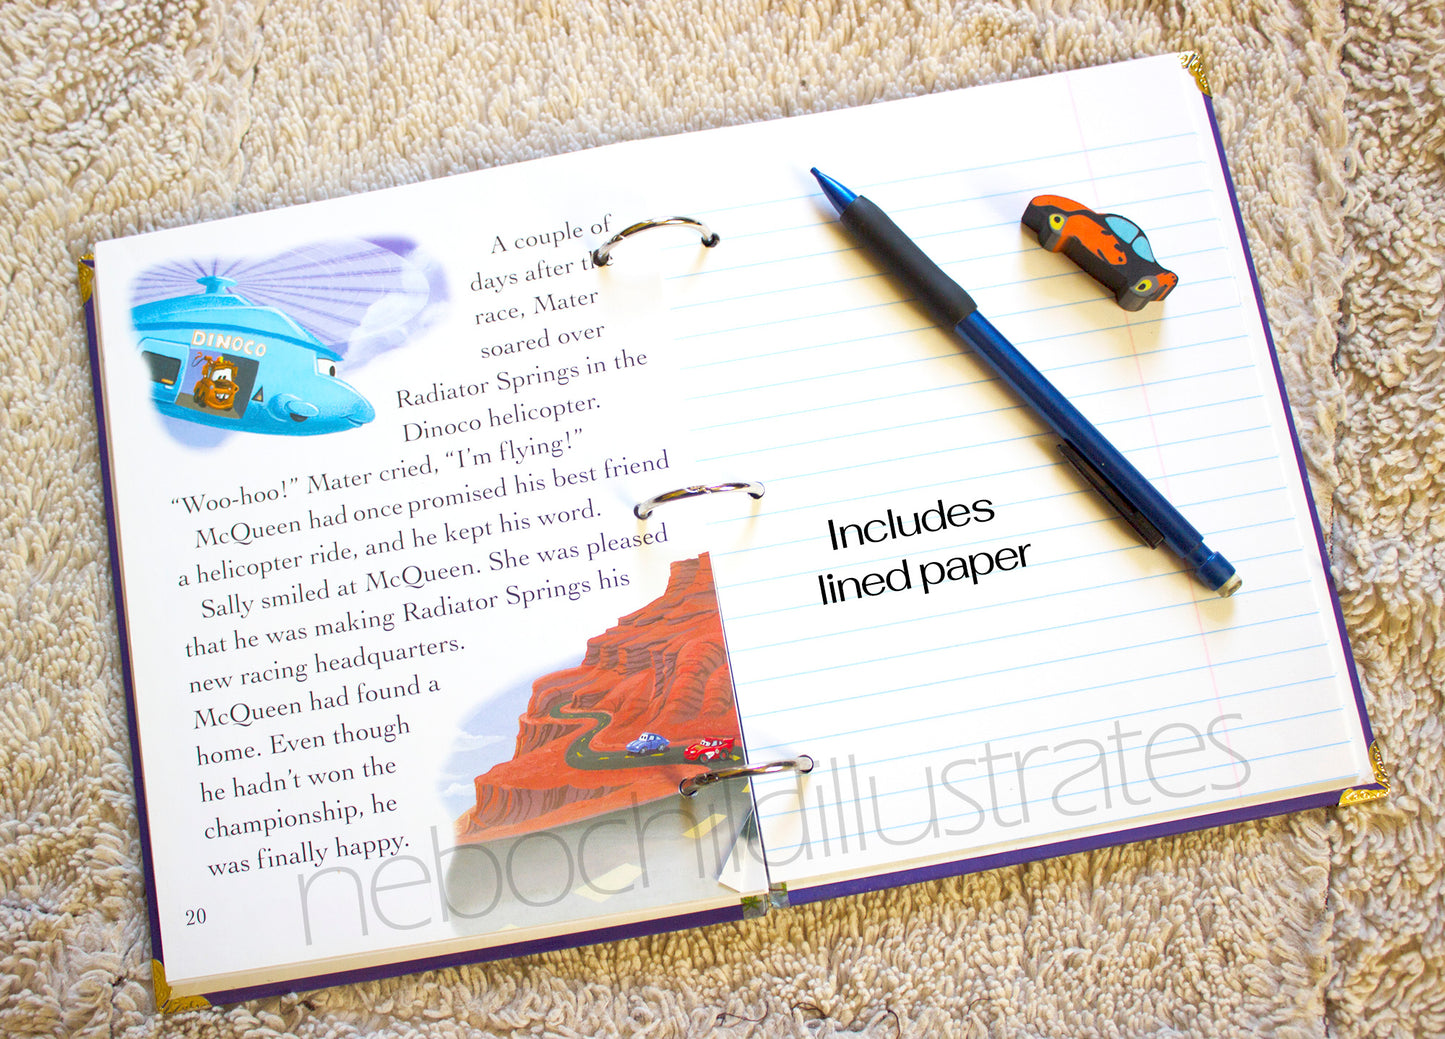 A couple of
days after the
race, Mater
soared over
Radiator Springs in the
Dinoco helicopter.
“Woo-hoo!” Mater cried, “I’m flying!”
McQueen had once promised his best friend
a helicopter ride, and he kept his word.
Sally smiled at McQueen. She was pleased
that he was making Radiator Springs his
new racing headquarters.
McQueen had found a
home. Even though
he hadn’t won the
championship, he
was finally happy.
20
DINOCO
Includes
lined paper
nebochildillustrates